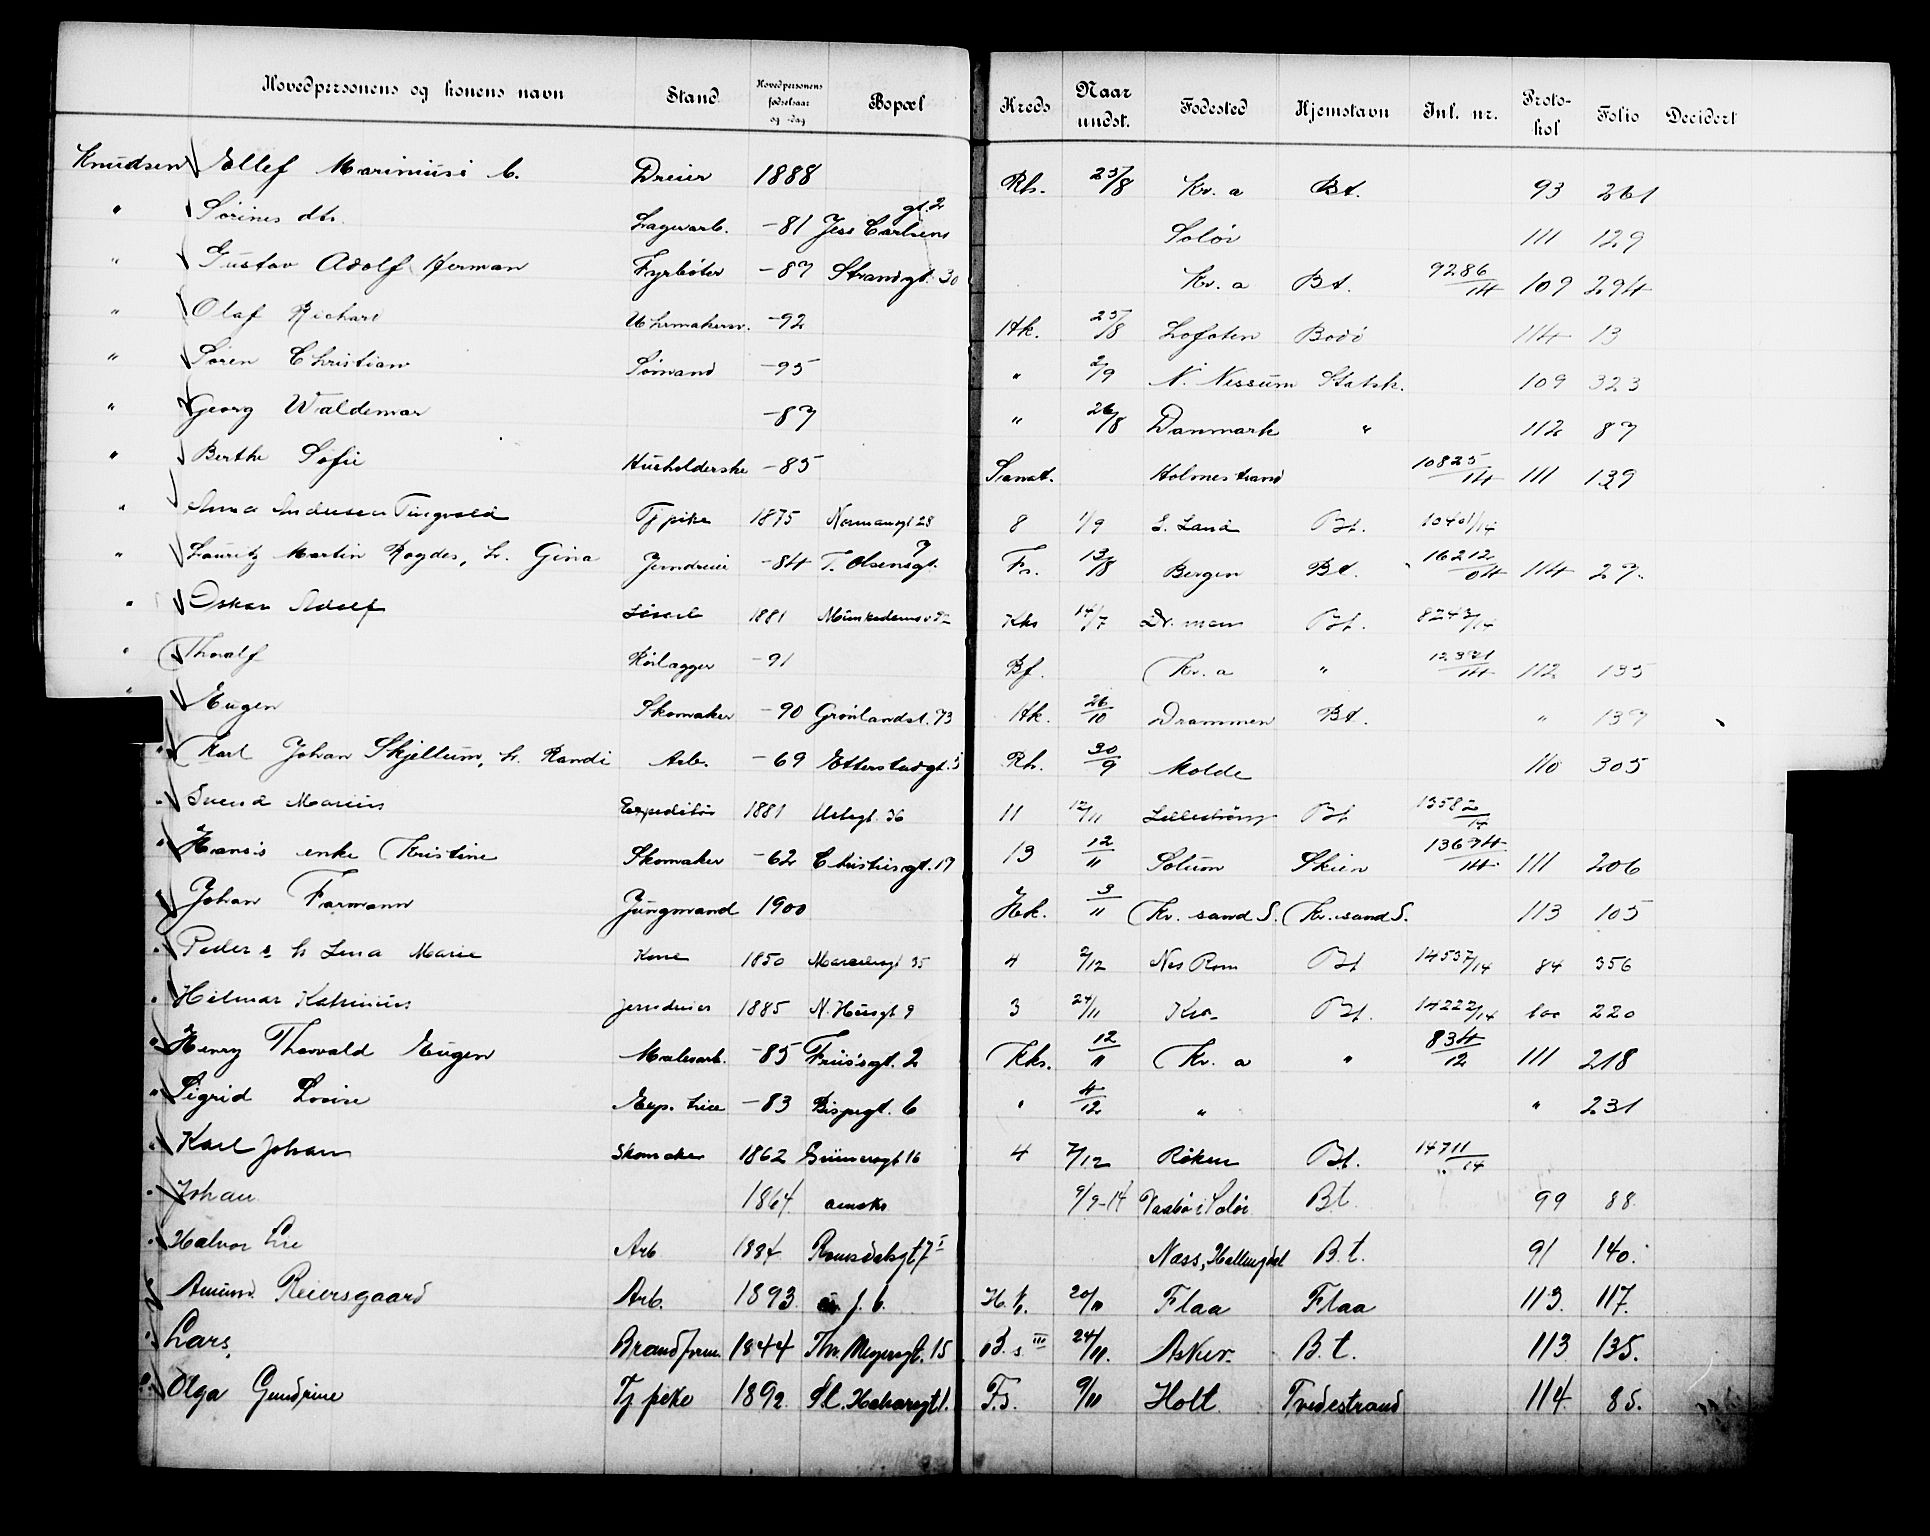 Hovedpersonens og konens navn Stand Hovedpersonens fødselsaar og -dag Bopæl Kreds Naar undst. Fødested Hjemstavn Inl. nr. Protokol Folio Decidert
Knudsen Ellef Mariniusi C. Dreier 1888 Rh. 25/8 Kr. a Bt. 93 261
" Sørines dtr. Lagerarb. -81 Jess Carlsens gt. 2 Solør 111 129
" Gustav Adolf Herman Fyrbøter -87 Strandgt. 30 Kr. a Bt. 9286/14 109 294
" Olaf Richard Uhrmakersv. -92 Hk. 25/8 Lofoten Bodø 114 13
" Søren Christian Sømand -95 " 2/9 N. Nessum Statsk. 109 323
" Georg Waldemar -87 " 26/8 Danmark " 112 87
" Berthe Sofie Husholderske -85 Sanat. Holmestrand 10825/14 111 139
" Anna Andersen Tingvold Tj pike 1875 Normansgt 28 8 1/9 S. Land Bt. 10401/14
" Lauritz Martin Rogdes, h. Gina Jerndreier -84 T. Olsensgt. 7 Fs. 13/8 Bergen Bt. 16212/04 114 27.
" Oskar Adolf 1881 Kks 14/7 Dr. men Bt. 8243/14
" Thoralf Rørlægger -91 Bf. Kr. a " 12321/14 112 135
" Eugen Skomaker -90 Grønlandsl. 73 Hk. 26/10 Drammen Bt. " 137
" Karl Johan Skjellum, h. Randi Arb. -69 Etterstadgt. 5 Rh. 30/9 Molde 110 305
" Svend Marius Expeditør 1881 Urtegt. 36 11 12/11 Lillestrøm Bt 13582/14
" Hansis enke Kristine Skomaker -62 Christiesgt. 17 13 12/11 Solum Skien 13674/14 111 206
" Johan Farmann Jungmand 1900 Hk. 3/11 Kr. sand S. Kr. sand S. 113 105
" Peder s h Lina Marie Kone 1850 Marcelesgt 35 4 2/12 Nes Rom Bt 14537/14 84 356
" Hilmar Katrinius Jerndreier 1885 N. Husgt 9 3 24/11 Kra- Bt. 14222/14 100 220
" Henry Thorvald Eugen Malerarb. -85 Friisgt. 2 Kks. 12/11 Kr. a " 834/12 111 218
" Sigrid Lovise Exp. trice -83 Bispegt. 6 " 4/12 " " 231
" Karl Johan Skomaker 1862 Brennersgt 16 4 7/12 Røken Bt. 14711/14
" Johan 1864 9/9-14 Vaabø i Solør Bt. 99 88
" Halvor Lie Arb. 1884 Romsdalsgt 7 I Næss, Hallingdal B.t. 91 140.
" Amund Reiersgaard Arb. 1893 f. b. H.k. 20/11 Flaa Flaa 113. 117.
" Lars, Brandform. 1844 Thv. Meyersgt. 15 B. s. III 24/11. Asker B.t. 113 135.
" Olga Gundrine Tj pike 1892 St. Halvarsgt 1. F.s. 9/11 Holt Tvedestrand 114 85.